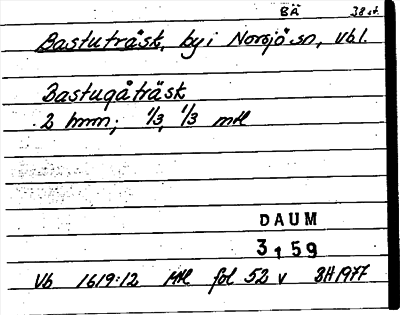 BÄ 38 st.
Bastuträsk, by i Norsjö sn, Vbl.
Bastugåträsk
2 hmn; 1/3, 1/3 mtl
DAUM
3159
Vb 1619:12 Mtl fol 52 v BH 1977